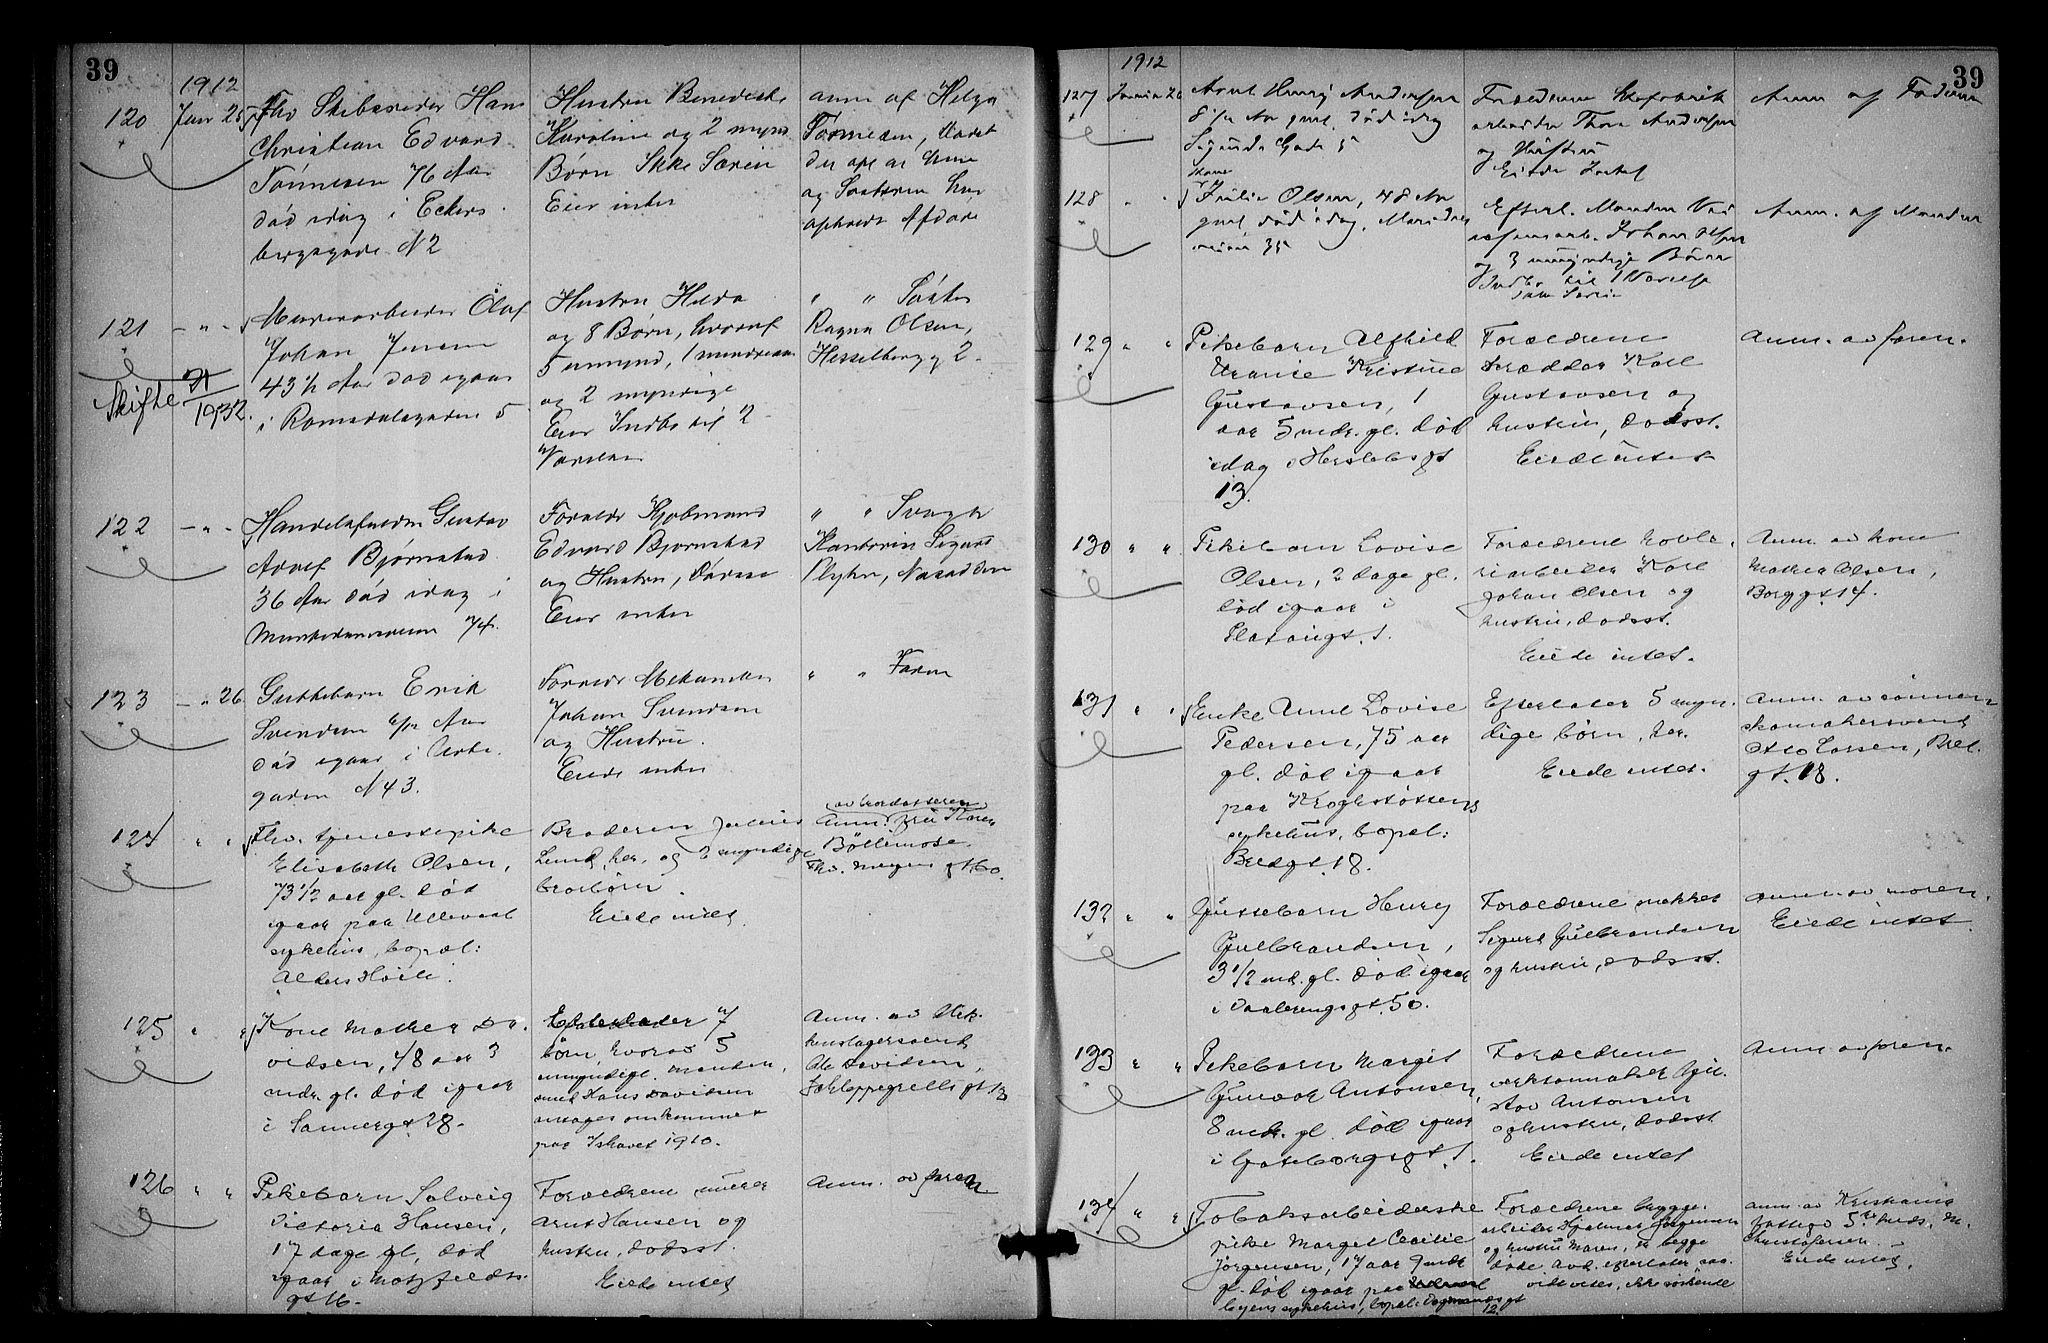 39
1912
120 Jan 25 Fhv Skibsreder Hans
Christian Edvard
Tønnesen 76 Aar
død idag i Eckers
bergsgade N 2
Hustru Benedicte
Karoline og 2 mynd.
Børn Ikke Særeie
Eier intet
anm af Helga
Tønnesen, Stedet
121 - " - Murerarbeider Olaf
Johan Jensen
43 1/2 Aar død igaar
i Romsdalsgaden 5
Skifte 21/1932.
Hustru Hilda
og 8 Børn, hvoraf
5 umynd, 1 mindreaar
og 2 myndige
Eier Indbo til
Værdien
" " Søster
Ragna Olsen,
Hesselbergg 2
122 - " - Handelsfuldm Gustav
Adolf Bjørnstad
36 Aar død idag i
Munkedamsveien 74.
Foreldr Kjøbmand
Edvard Bjørnstad
og Hustru,
Eier intet
" " Svoger
Kontorist Sigurd
123 - " 26 Guttebarn Erik
Svendsen Aar
død igaar i Urte
gaden N 43.
Foreldr Mekaniker
Johan Svendsen
og Hustru.
Eiede intet
" " Faren
124 " " Fhv. tjenestepike
Elisabeth Olsen,
73 1/2 aar gl. død
igaar paa Ullevaal
sykehus, bopæl:
Alders Hvile.
Broderen Julius
Lund, her, og 2 myndige
brorbørn.
Eiede intet
av brordatteren
Anm. fru Karen
Bøttemose
Thv. Meyers gt 60.
125 " " Kone Mathea Da
vidsen, 48 aar 3
mdr. gl. død igaar
i Sannergt 28.
Efterlader 7
børn, hvorav 5
umyndige. Manden,
smed Hans Davidsen
antages omkommet
paa Ishavet 1910.
Anm. av Blik
kenslagersvend
Ole Davidsen,
Jobleppegrells gt 13
126 " " Pikebarn Solveig
Victoria Hansen,
17 dage gl, død
igaar i Motzfeldts
gt 16.
Forældrene murer
Arnt Hansen og
hustru, dødsst.
Eiede intet
Anm. av faren
39
1912
127 Januar 26 Arnt Henry Andersen
8 1/2 Aar gml. død idag
Forældrene Skofabrik
arbeider Thor Andersen
og Hustru
Eiede Intet
Anm af Faderen
128 " " Kone
Julie Olsen, 48 Aar
gml. død idag, Maridals
veien 35
Efterl. Manden
Johan Olsen
og 3 umyndige Børn
Anm. af Manden
129 " " Pikebarn Alfhild
Uranie Kristine
Gustavsen, 1
aar 5 mdr. gl. død
idag i Herslebsgt
13.
Forældrene
skrædder Karl
Gustavsen og
hustru, dødsst.
Eiede intet
Anm. av faren.
130 " " Pikebarn Lovise
Olsen, 2 dage gl.
død igaar i
Platougt. 1.
Forældrene høvle
riarbeider Karl
Johan Olsen og
hustru, dødsst.
Eiede intet.
Anm. av kone
Mathea Olsen,
Borggt 14.
131 " " Enke Anne Lovise
Pedersen, 75 aar
gl. død igaar
paa Kroghstøttens
sykehus, bopæl:
Bredgt. 18.
Efterlater 5 myn
dige børn, her.
Eiede intet.
Anm. av sønnen
skomakersvend
Otto Larsen, Bred
gt. 18.
132 " " Guttebarn Henry
Gulbrandsen,
3 1/2 md. gl. død igaar
i Vaalerengsgt. 50.
Forældrene snekker
Sigurd Gulbrandsen
og hustru, dødsst.
Anm. av moren.
Eiede intet
133 " " Pikebarn Margit
Gunvor Antonsen,
8 mdr. gl. død igaar
i Gøteborgsgt. 1.
Forældrene
verktømaker Gu
stav Antonsen
og hustru, dødsst
Eiede intet
Anm. av faren.
134 " " Tobaksarbeiderske
pike Margit Cecilie
Jørgensen, 17 aar 9 mdr
gl. død igaar paa
byens sykehus, bopæl: Dagmarsgt
12.
Forældrene brygge
arbeider Hjalmar Jørgensen
og hustru Maren, er begge
døde. Avd. efterlater saa
vidt vites, ikke søskende
Anm. av Kristiania
fattigv 5te Kreds,
Christofersen.
Eiede intet.